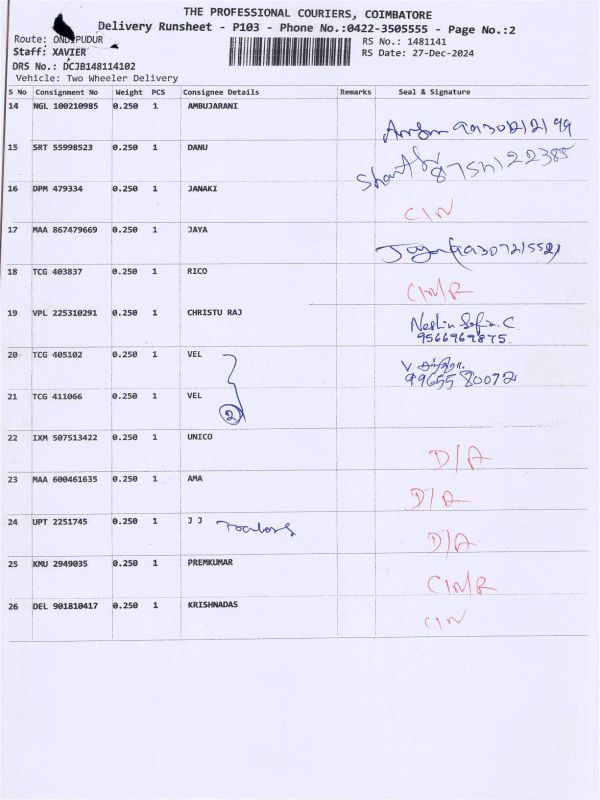 THE PROFESSIONAL COURIERS, COIMBATORE
Delivery Runsheet - P103 - Phone No.:0422-3505555 - Page No.:2
Route: ONDIPUDUR
RS No.: 1481141
Staff: XAVIER
RS Date: 27-Dec-2024
DRS No.: DCJB148114102
Vehicle: Two Wheeler Delivery
S No Consignment No Weight PCS Consignee Details Remarks Seal & Signature
14 NGL 100210985 0.250 1 AMBUJARANI
15 SRT 55998523 0.250 1 DANU
16 DPM 479334 0.250 1 JANAKI CIN
17 MAA 867479669 0.250 1 JAYA Jaya
18 TCG 403837 0.250 1 RICO CIN/R
19 VPL 225310291 0.250 1 CHRISTU RAJ
9566969875.
20 TCG 405102 0.250 1 VEL
9965580072
21 TCG 411066 0.250 1 VEL 2
22 IXM 507513422 0.250 1 UNICO D/A
23 MAA 600461635 0.250 1 AMA D/A
24 UPT 2251745 0.250 1 J J D/A
25 KMU 2949035 0.250 1 PREMKUMAR CIN/R
26 DEL 901810417 0.250 1 KRISHNADAS CIN